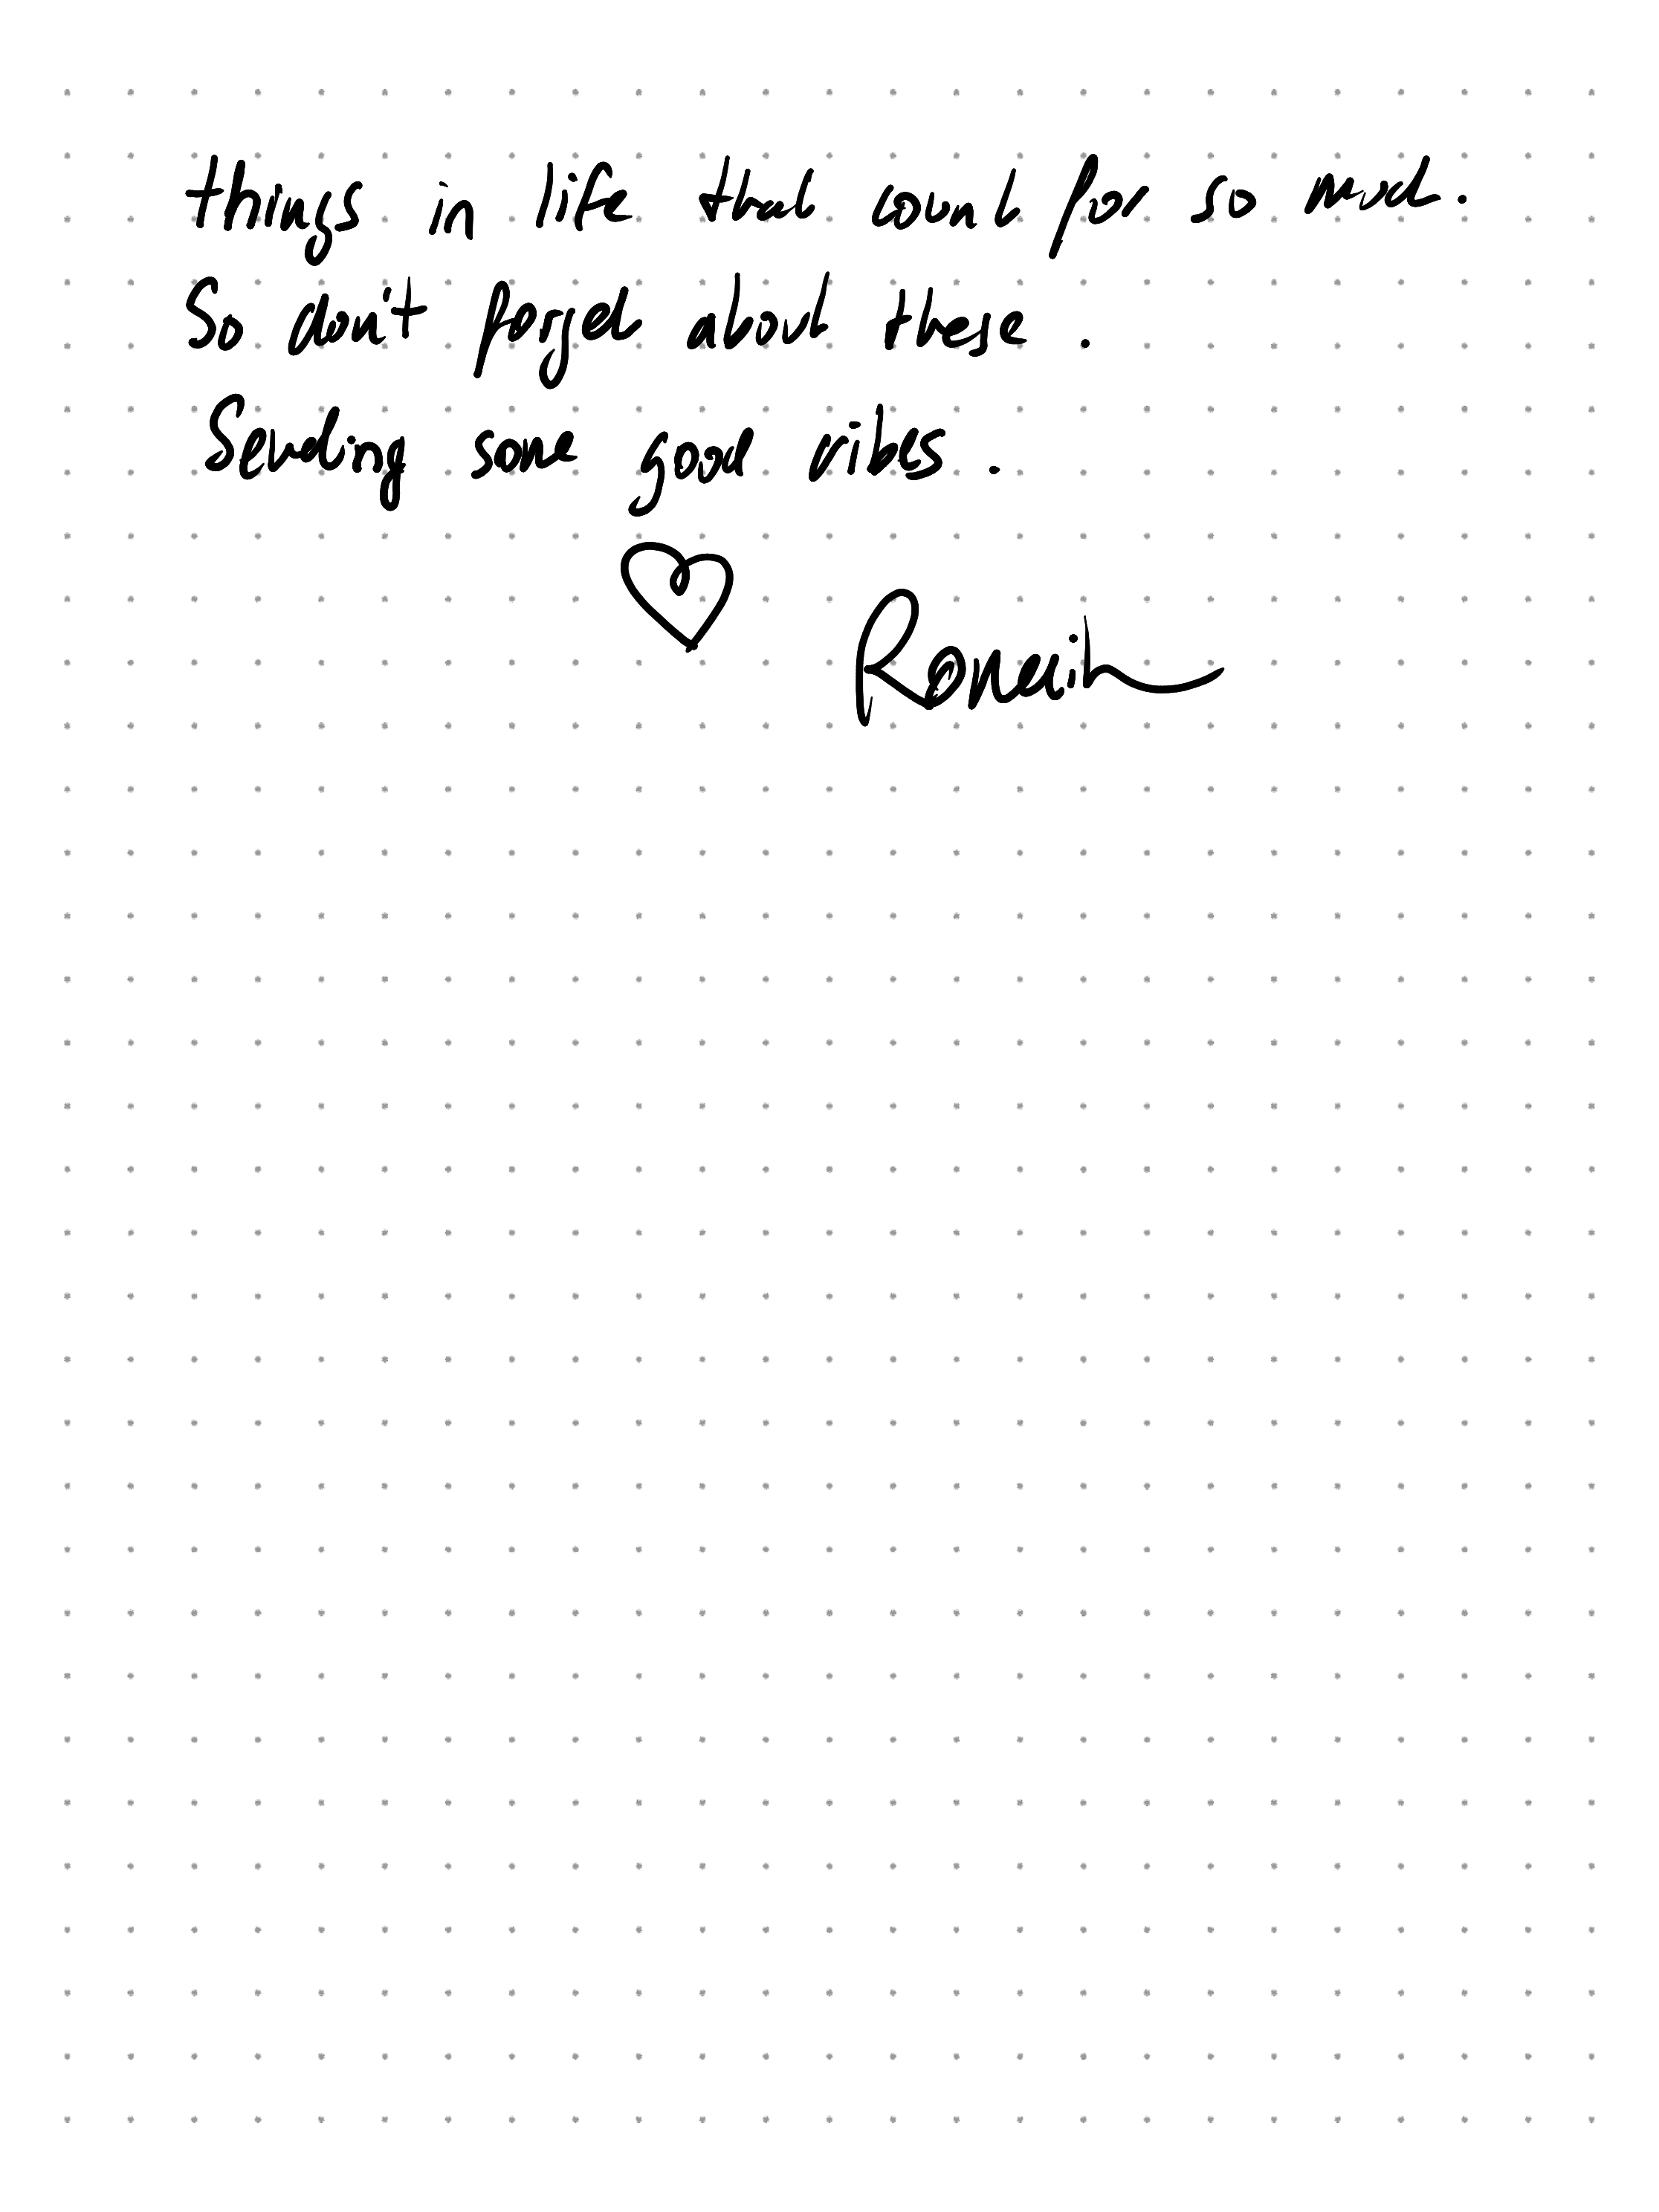 things in life that count for so much.
So don't forget about these.
Sending some good vibes.